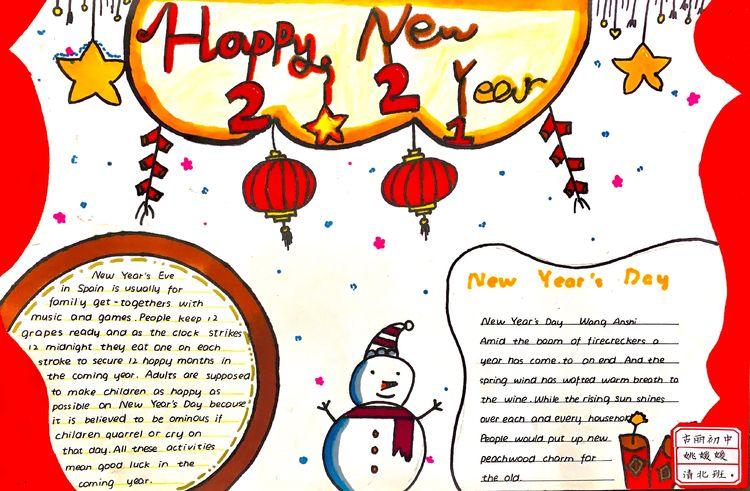 Happy New
Year
2 2 1
New Year's Eve
in Spain is usually for
family get-togethers with
music and games. People keep 12
grapes ready and as the clock strikes
12 midnight they eat one on each
stroke to secure 12 happy months in
the coming year. Adults are supposed
to make children as happy as
possible on New Year's Day because
it is believed to be ominous if
children quarrel or cry on
that day. All these activities
mean good luck in the
coming year.
New Year's Day
New Year's Day Wang Anshi
Amid the boom of firecreckers a
year has come to an end And the
spring wind has wafted warm breath to
the wine. While the rising sun shines
over each and every household
People would put up new
peachwood charm for
the old.
古丽初中
姚媛媛
清北班.